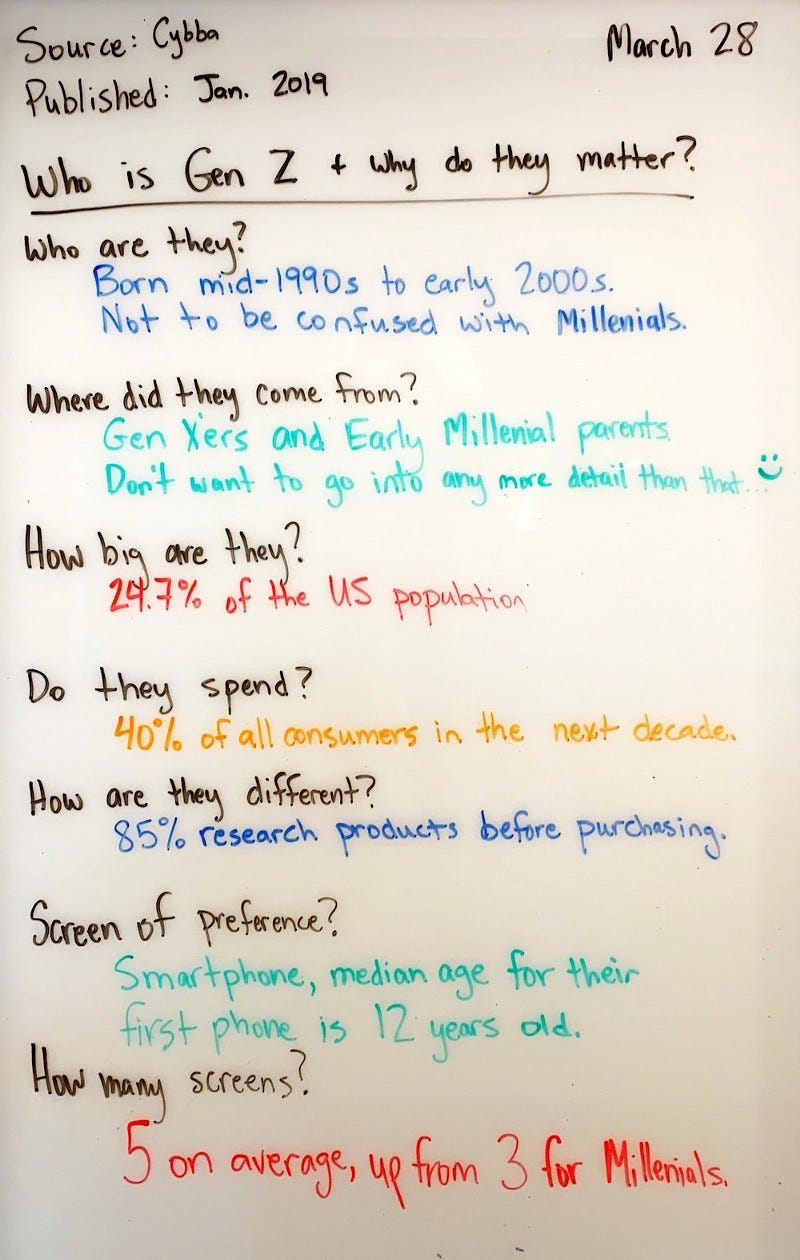 Source: Cybba
March 28
Published: Jan. 2019
Who is Gen Z + why do they matter?
Who are they?
Born mid-1990s to early 2000s.
Not to be confused with Millenials.
Where did they come from?
Gen X'ers and Early Millenial parents.
Don't want to go into any more detail than that...
How big are they?
24.7% of the US population
Do they spend?
40% of all consumers in the next decade.
How are they different?
85% research products before purchasing.
Screen of preference?
Smartphone, median age for their
first phone is 12 years old.
How many screens?
5 on average, up from 3 for Millenials.